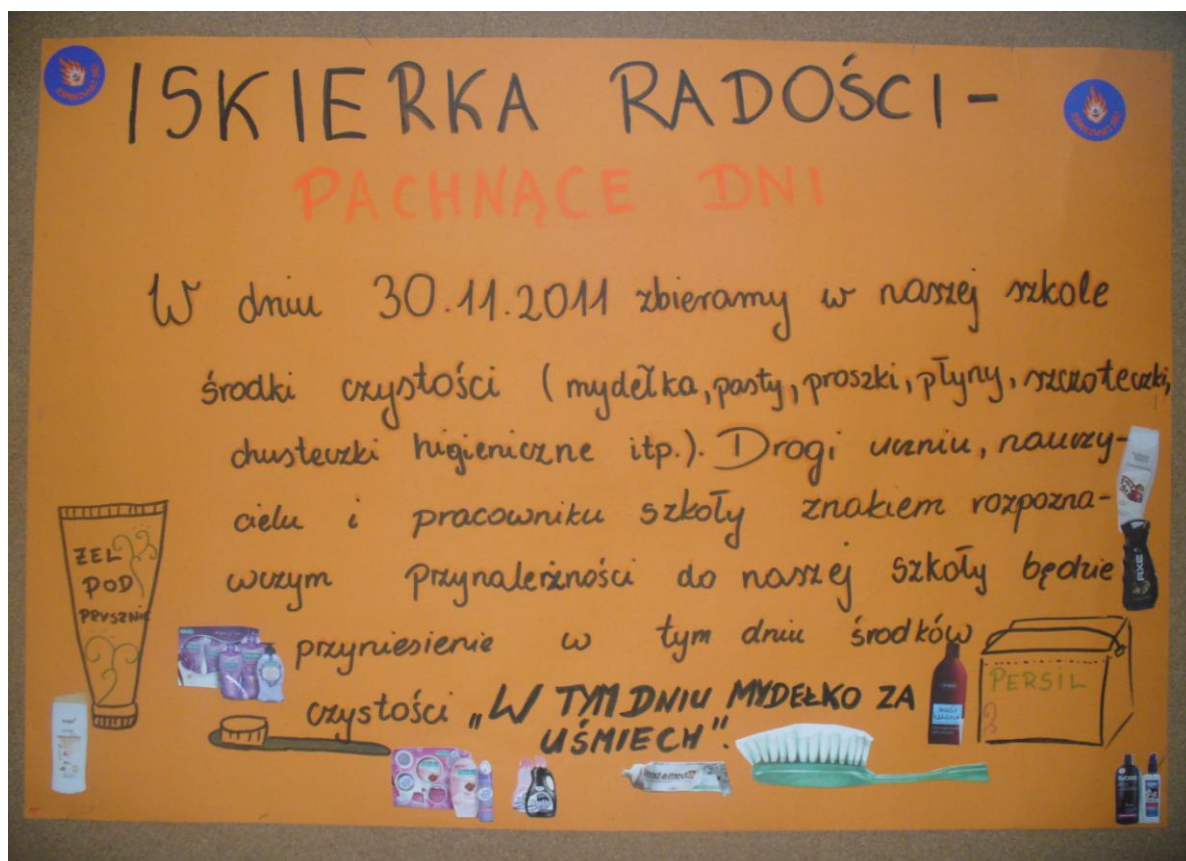 ISKIERKA RADOŚCI-
PACHNĄCE DNI
W dniu 30.11.2011 zbieramy w naszej szkole
środki czystości (mydełka, pasty, proszki, płyny, szczoteczki,
chusteczki higieniczne itp.). Drogi uczniu, nauczy-
cielu i pracowniku szkoły znakiem rozpozna-
wczym przynależności do naszej szkoły będzie
przyniesienie w tym dniu środków
czystości „W TYM DNIU MYDEŁKO ZA
UŚMIECH".
ŻEL
POD
PRYSZNIC
AXE
PERSIL